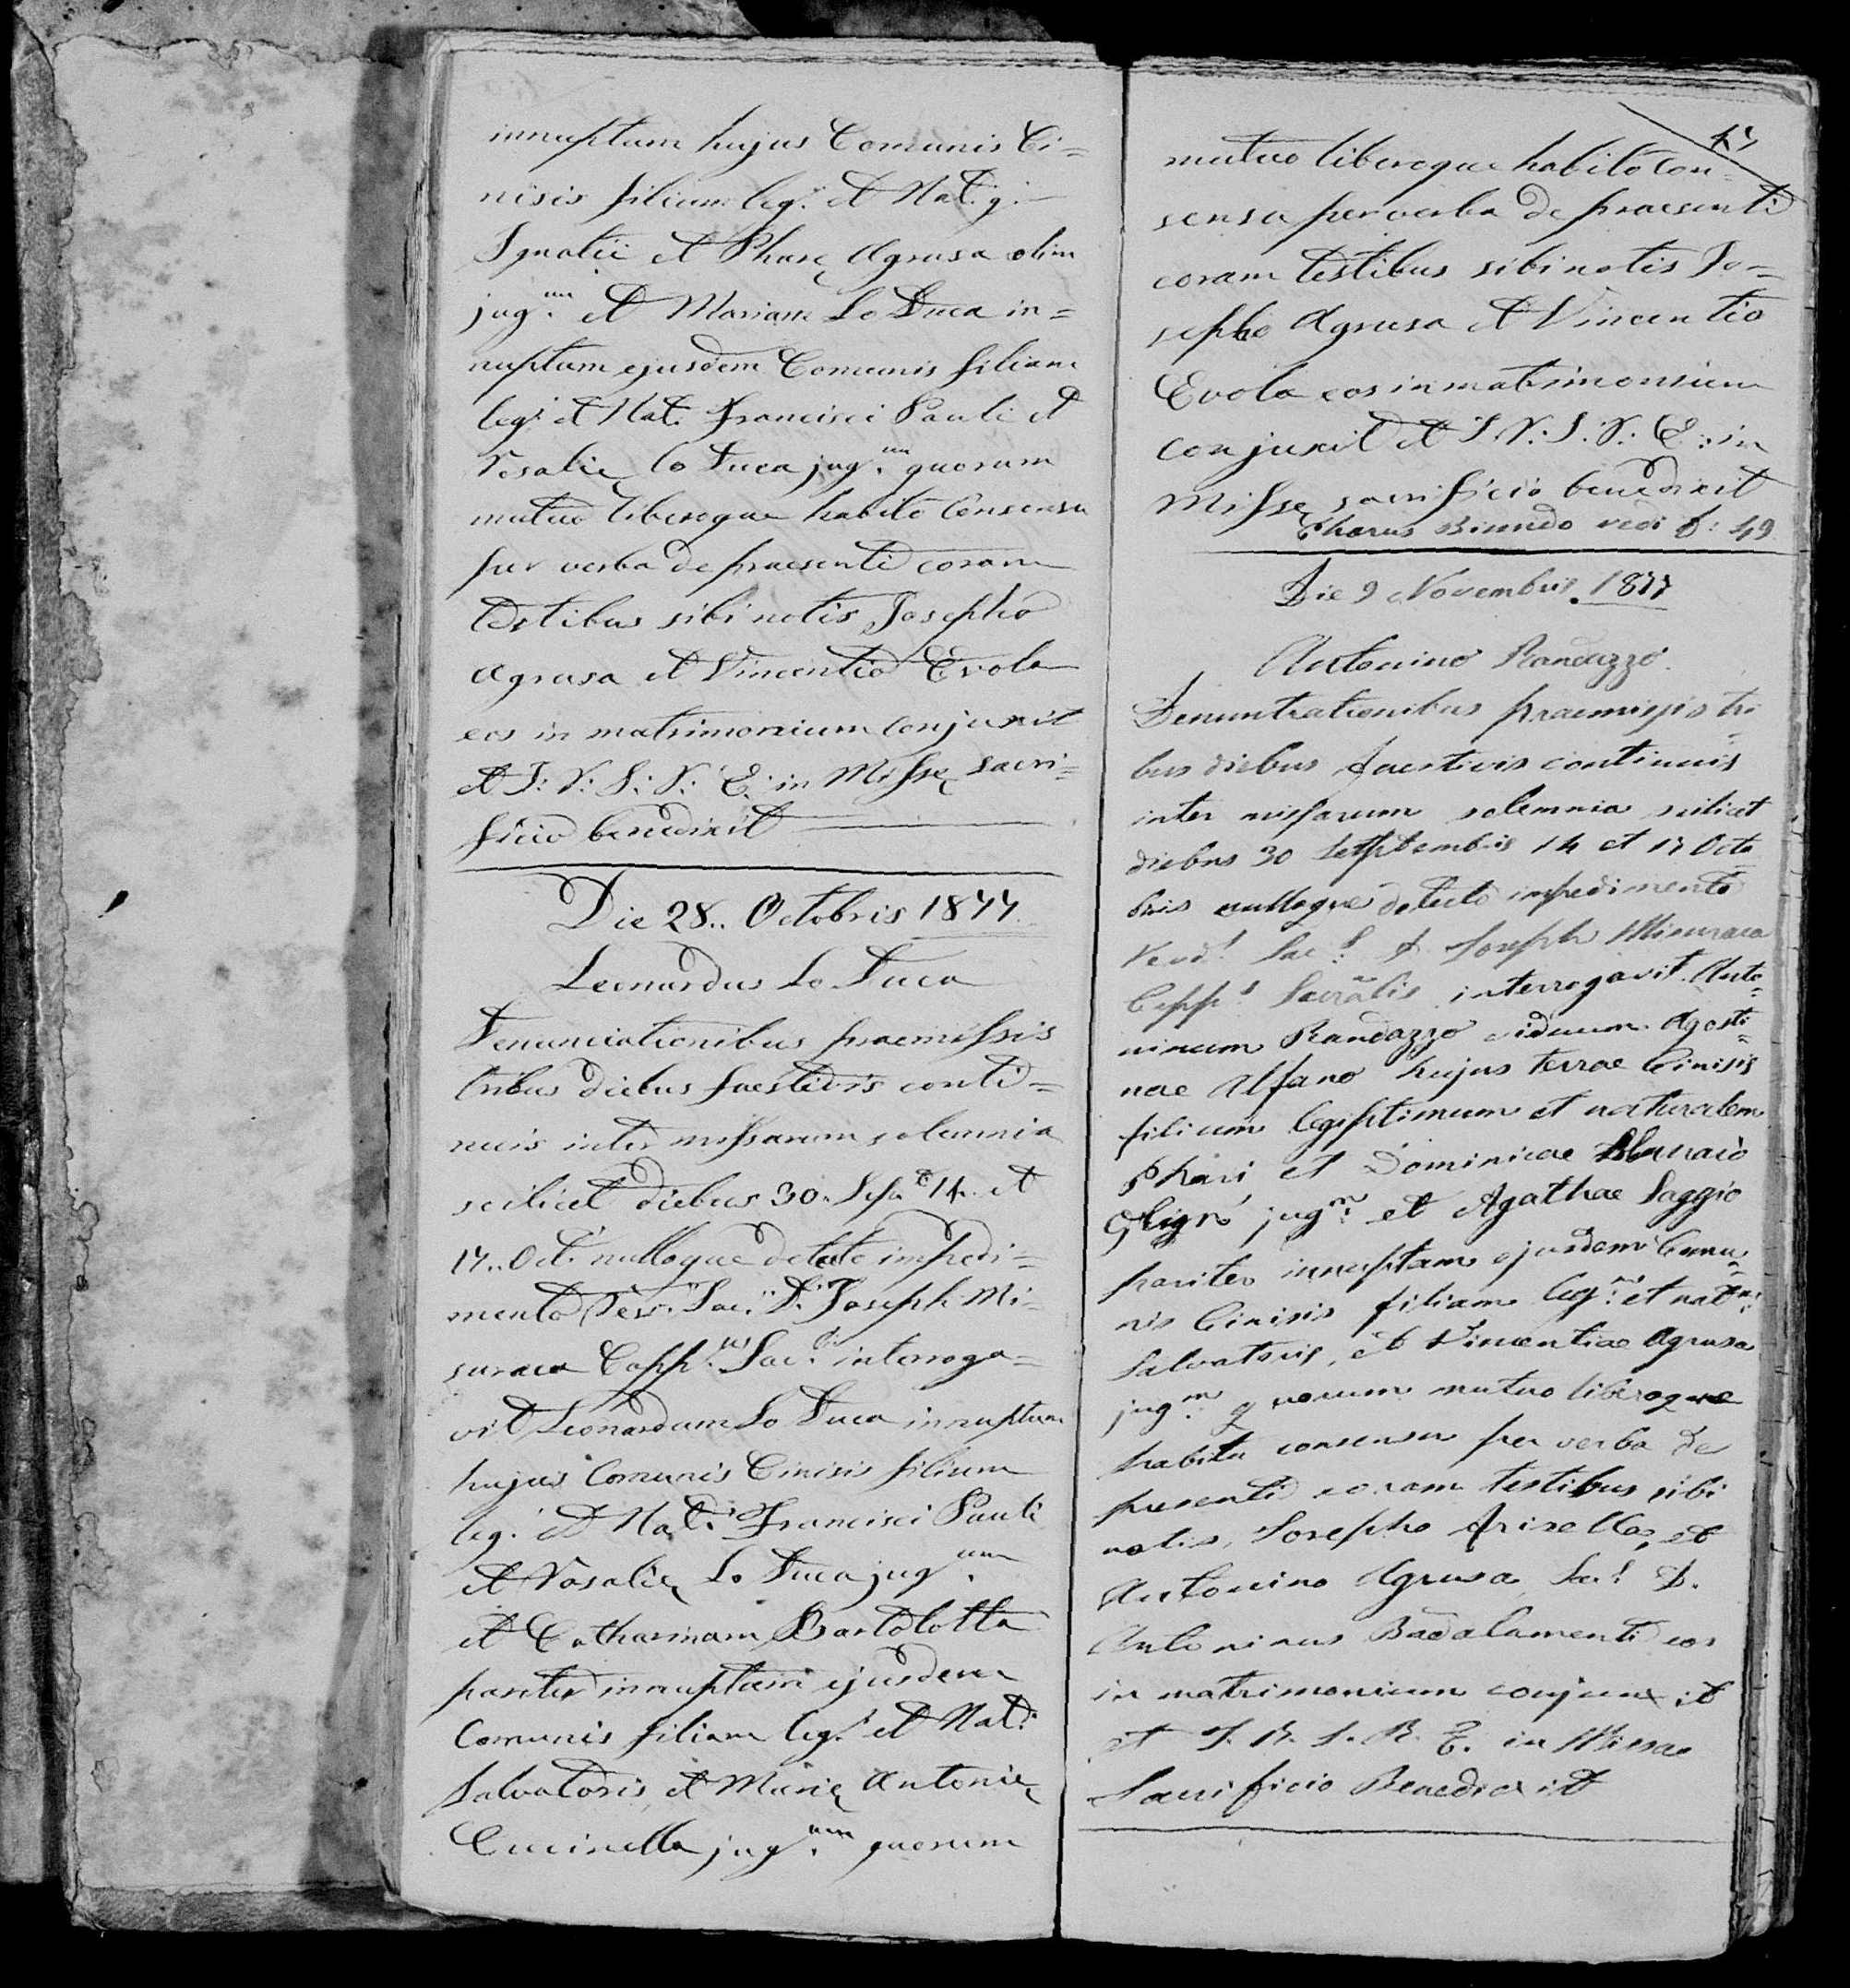 innuptum hujus Comunis Ci=
nisis filium leg. et Nat. q.
Ignatii et Pharę Agrusa olim
jug.um et Mariam Lo Duca in=
nuptam ejusdem Comunis filiam
leg. et Nat. Francisci Pauli et
Rosalię lo Duca jug.um quorum
mutuo liberoque habito Consensu
per verba de praesenti coram
testibus sibi notis Josepho
Agrusa et Vincentio Evola
eos in matrimonium conjunxit
et J: V: S: V: E: in Missę sacri=
ficio benedixit
Die 28.. Octobris 1877
Leonardus Lo Duca
Denunciationibus praemissis
tribus diebus faestivis conti=
nuis inter missarum solemnia
scilicet diebus 30. 14. et
17.. Oct. nulloque detecto impedi=
mento Rev. Sac. D. Joseph Mi=
suraca Capp.us Sac.lis interroga=
vit Leonardum Lo Duca innuptum
hujus Comunis Cinisis filium
leg. et Nat. Francisci Pauli
et Rosalię Lo Duca jug.um
et Catharinam Bartolotta
pariter innuptam ejusdem
Comunis filiam leg. et Nat.
Salvatoris et Marię Antonię
Cucinella jug.um quorum
mutuo liberoque habito con=
sensu per verba de praesenti
coram testibus sibi notis Jo=
sepho Agrusa et Vincentio
Evola eos in matrimonium
conjunxit et J. V: S. V: E: in
Missę sacrificio benedixit
Pharus Biundo vedi f: 49
Die 9 Novembris 1877
Antonino Randazzo
Denuntrationibus praemissis tri
bus diebus faestivis continuis
inter missarum solemnia scilicet
diebus 30 Settptembris 14 et 17 Octo
bris nulloque detecto impedimento
Revd. Sac. D. Joseph Misuraca
Capp.s Sacralis interrogavit Anto=
ninum Randazzo viduum Agosti=
nae Alfano hujus terrae Cinisis
filium legiptimum et naturalem
Phari et Dominicae
jug.m et Agathae Saggio
pariter innuptam ejusdem Comu=
nis Cinisis filiam leg.m et nat.m
Salvatoris, et Vincentiae Agrusa
jug.m quorum mutuo liberoque
habitu consensu per verba de
presenti coram testibus sibi
notis, Josepho et
Antonino Agrusa Sac. D.
Antoninus Badalamenti eos
in matrimonium conjunxit
et J. R. S. R. E. in Missae
Sacrificio Benedixit